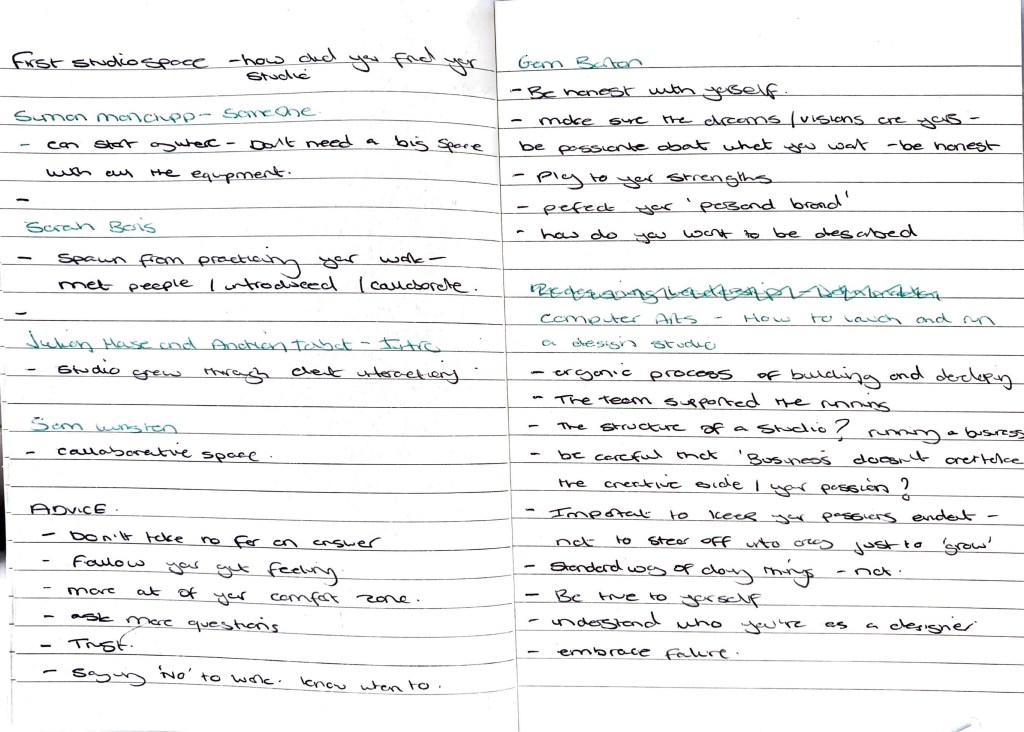 First studio space - how did you find your
studio
Simon - Someone.
- can start anywhere - Don't need a big space
with all the equipment.
-
Sarah
- Spawn from practicing your work -
met people / introduced / collaborate.
-
Julian and Andrien - Intro
- Studio grew through client interactions
Sam Winston
- collaborative space.
ADVICE.
- Don't take no for an answer
- Follow your gut feeling
- move out of your comfort zone.
- ask more questions
- Trust.
- Saying 'No' to work. know when to.
Gem Barton
- Be honest with yourself.
- make sure the dreams / visions are yours -
be passionate about what you want - be honest
- Play to your strengths
- perfect your 'personal brand'
- how do you want to be described
Computer Arts - How to launch and run
a design studio
- organic process of building and developing
- The team supported the running
- The structure of a studio? running a business
- be careful that 'Business' doesn't overtake
the creative side / your passion?
- Important to keep your passions evident -
not to steer off into areas just to 'grow'
- Standard way of doing things - not.
- Be true to yourself
- understand who you're as a designer
- embrace failure.